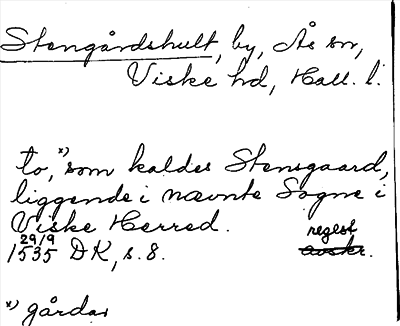 Stengårdshult, by, Ås sn,
Viske hd, Hall. l.
to,x) som kaldes Stensgaard,
liggende i nævnte Sogne i
Viske Herred.
29/9 regest
1535 DK, s. 8. avskr.
x) gårdar